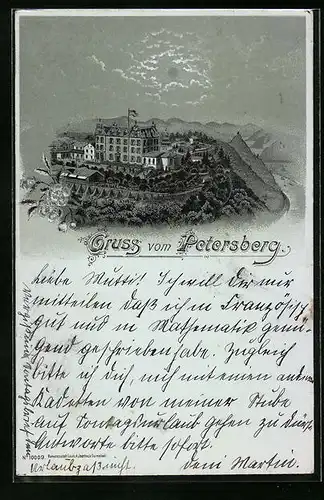 Gruss vom Petersberg.
Liebe Mutti! Ich will Dir nur
mitteilen daß ich in Französisch
gut und in Mathematik genü-
gend geschrieben habe. Zugleich
bitte ich dich, mich mit einem andern
Kadetten von meiner Stube
auf Sonntagsurlaub gehen zu
Antworte bitte sofort.
Dein Martin.
10009